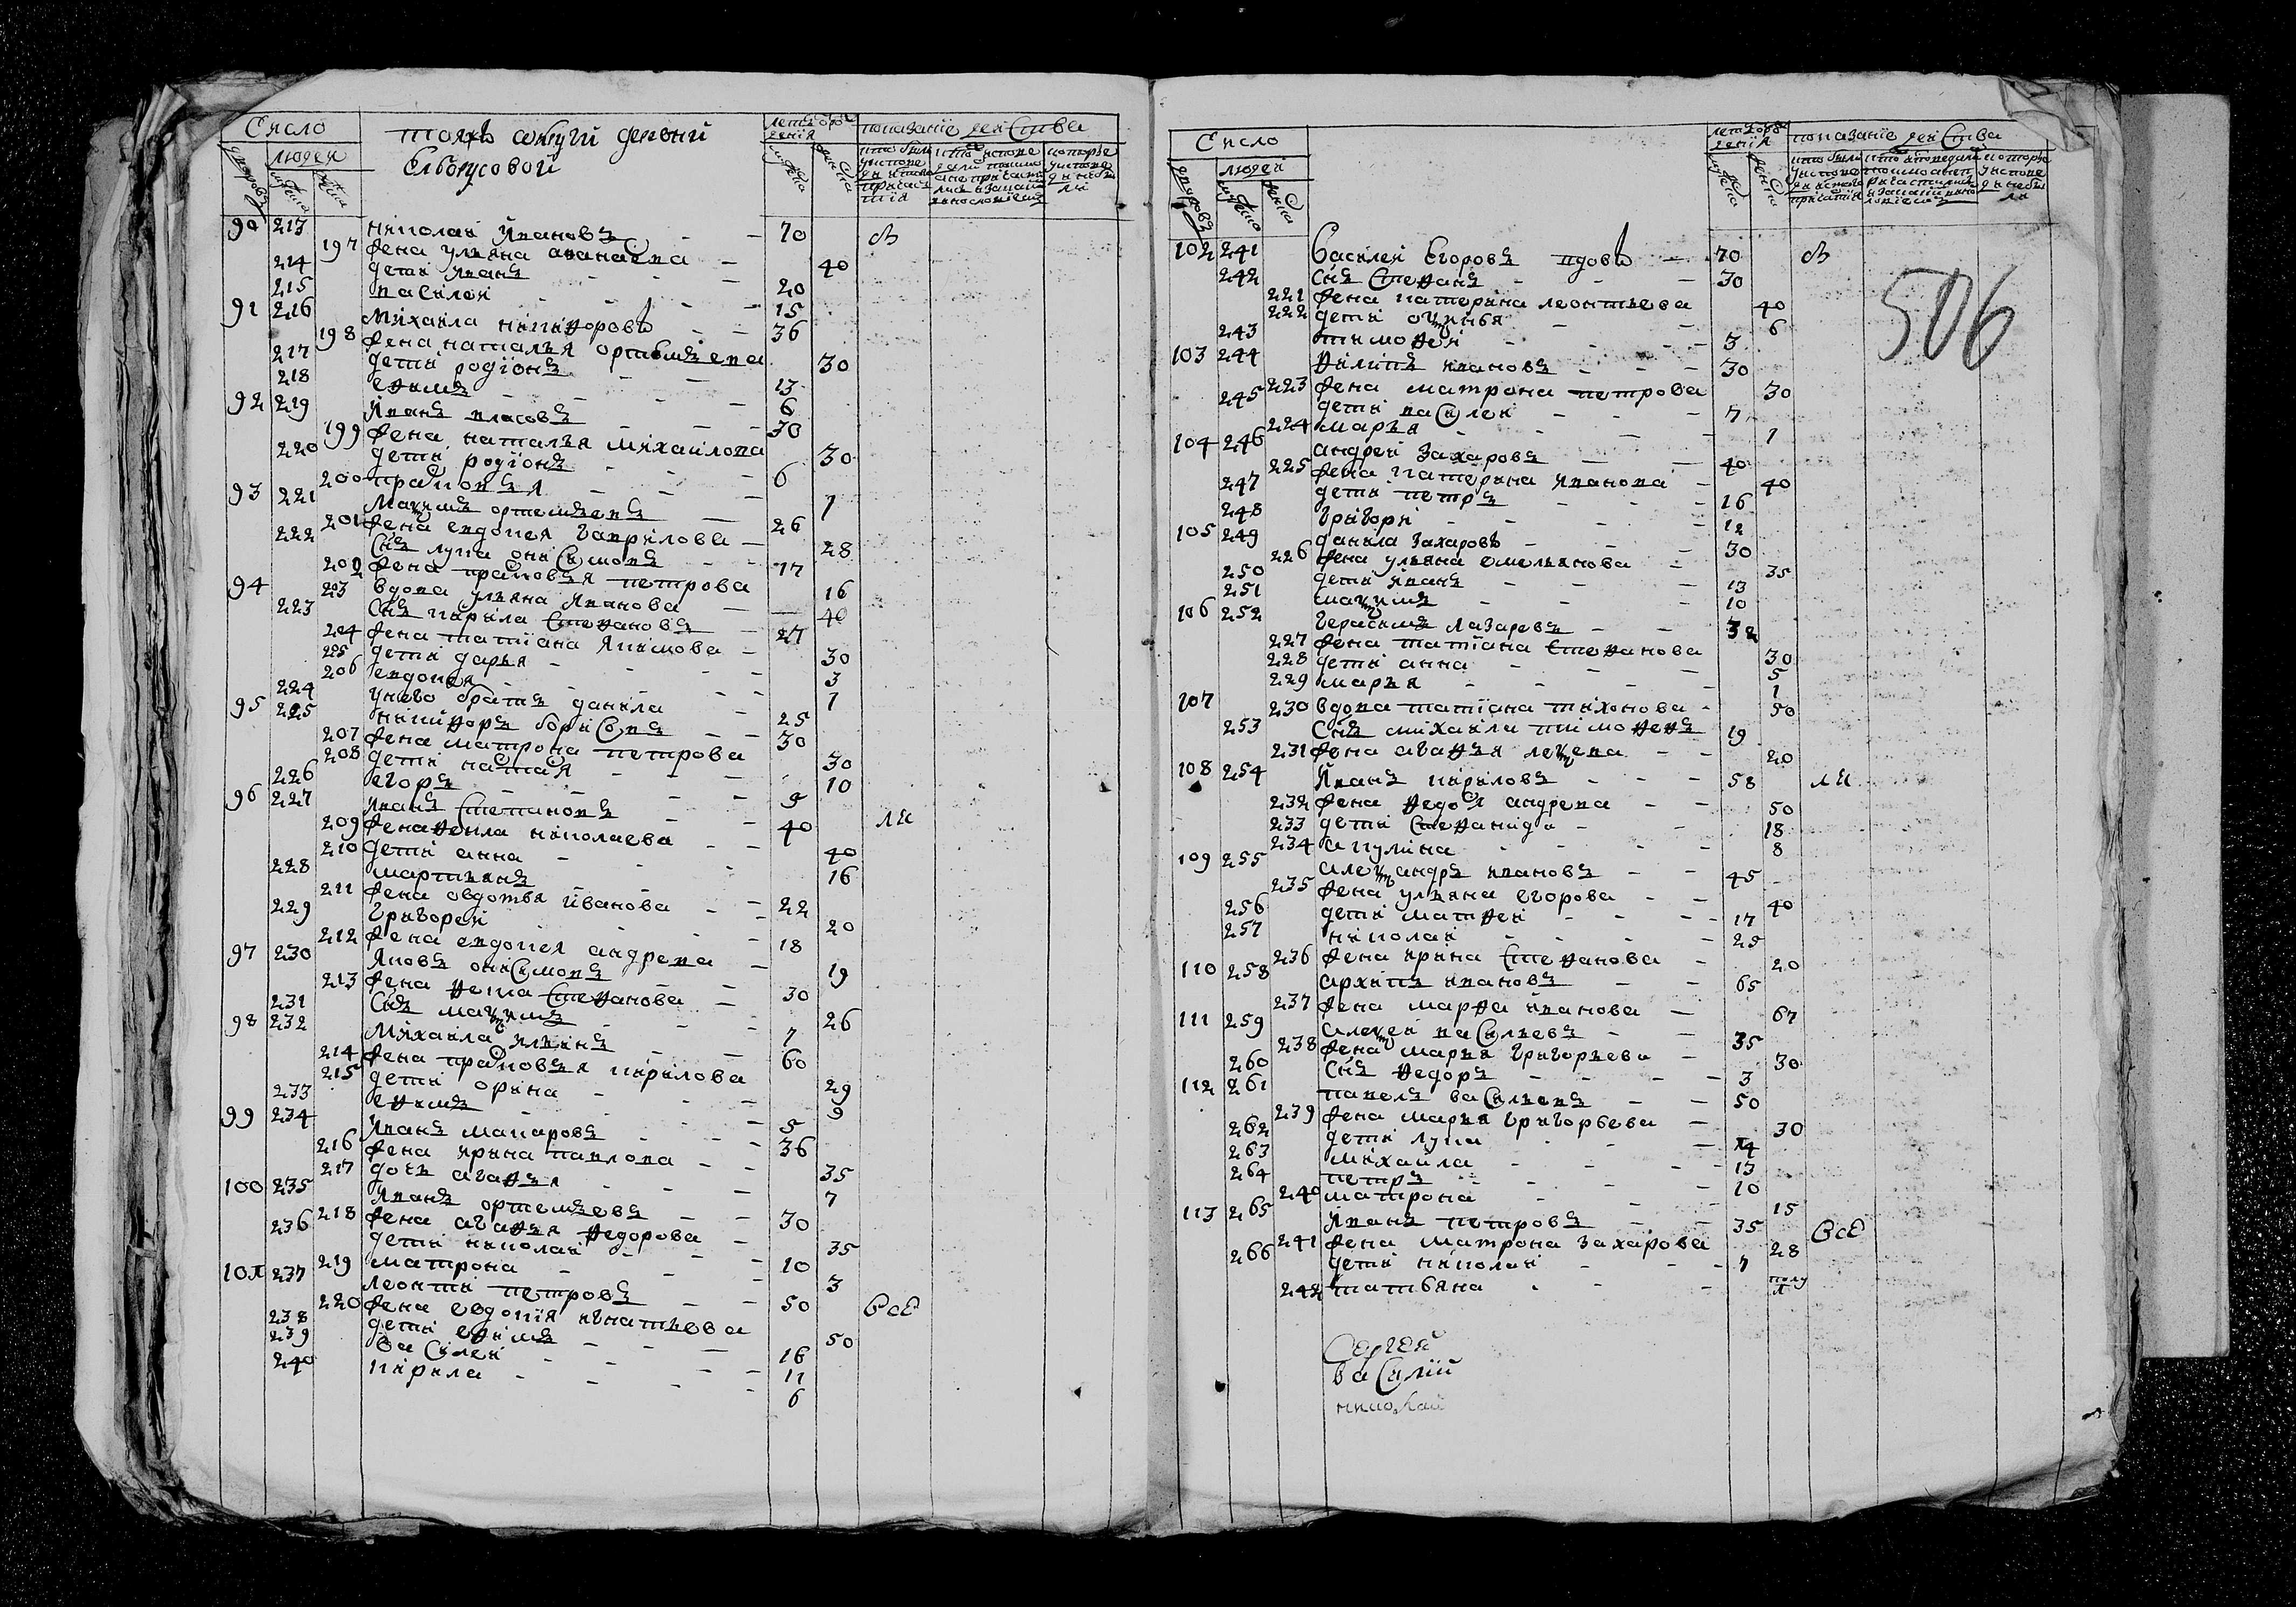 Число
людей
тояжъ округи деревни
Елбонусовой
показание действа
90 213 николай Ивановъ 70 въ
197 жена улияна ананьева 40
214 дети иванъ 20
215 василеи 15
91 216 михаила никифоровъ 36
198 жена наталья ортемьева 30
217 дети родіонъ 13
218 ефимъ 6
92 219 Иванъ власовъ 30
199 жена наталья михаилова 30
220 дети родіонъ 6
200 прасковья 1
93 221 максимъ ортемьевъ 26
201 жена евдокея гаврилова 28
222 Снъ лука онисимовъ 17
202 жена прасковья петрова 16
94 203 вдова улияна иванова 40
223 Снъ кирила Степановъ 27
204 жена татіана якимова 30
205 дети дарья 3
206 евдокея 1
224 унего братъ данила 25
95 225 никифоръ борисовъ 30
207 жена матрона петрова 30
208 дети настася 10
226 егоръ 9
96 227 иванъ Степановъ 40 ли
209 жена фекла николаева 40
210 дети анна 16
228 мартьянъ 22
211 жена овдотья иванова 20
229 григореи 18
212 жена евдокея андреева 19
97 230 яковъ онисимовъ 30
213 жена фекла Степанова 26
231 Снъ максимъ 7
98 232 михаила ильинъ 60
214 жена прасковья кирилова 29
215 дети орина 9
233 ефимъ 5
99 234 иванъ макаровъ 36
216 жена ирина павлова 35
217 дочь агафья 7
100 235 иванъ ортемьевъ 30
218 жена агафья федорова 35
236 дети николаи 10
219 матрона 3
101 237 леонти петровъ 50 все
220 жена евдокия игнатьева 50
238 дети ефимъ 16
239 василеи 11
240 кирила 6
Число
людей
показание действа
506
102 241 василеи егоровъ вдовъ 70 въ
242 снъ Степанъ 30
221 жена катерина леонтьева 40
222 дети оксинья 6
243 тимофеи 3
103 244 филипъ ивановъ 30
223 жена матрона петрова 30
245 дети василеи 7
224 марья 1
104 246 андреи захаровъ 40
225 жена катерина иванова 40
247 дети петръ 16
248 григори 12
105 249 данила захаровъ 30
226 жена улияна емельянова 35
250 дети иванъ 13
251 максимъ 10
106 252 герасимъ лазаревъ 32
227 жена татіана Степанова 30
228 дети анна 5
229 марья 1
107 230 вдова татіана тихонова 50
253 Снъ михаила тимофеевъ 19
231 жена агафья 20
108 254 иванъ кириловъ 58 ли
232 жена федося андреева 50
233 дети Степанида 18
234 акулина 8
109 255 александръ ивановъ 45
235 жена улияна егорова 40
256 дети матфеи 17
257 николаи 25
236 жена ирина Степанова 20
110 258 архипъ ивановъ 65
237 жена марфа иванова 67
111 259 алексеи васильевъ 35
238 жена марья григорьева 30
260 Снъ федоръ 3
112 261 павелъ васильевъ 50
239 жена марья григорьева 30
262 дети лука 14
263 михаила 13
264 петръ 10
240 матрона 15
113 265 иванъ петровъ 35 все
241 жена матрона захарова 28
266 дети николаи 7
242 татьяна полу
Сергей
василий
николай